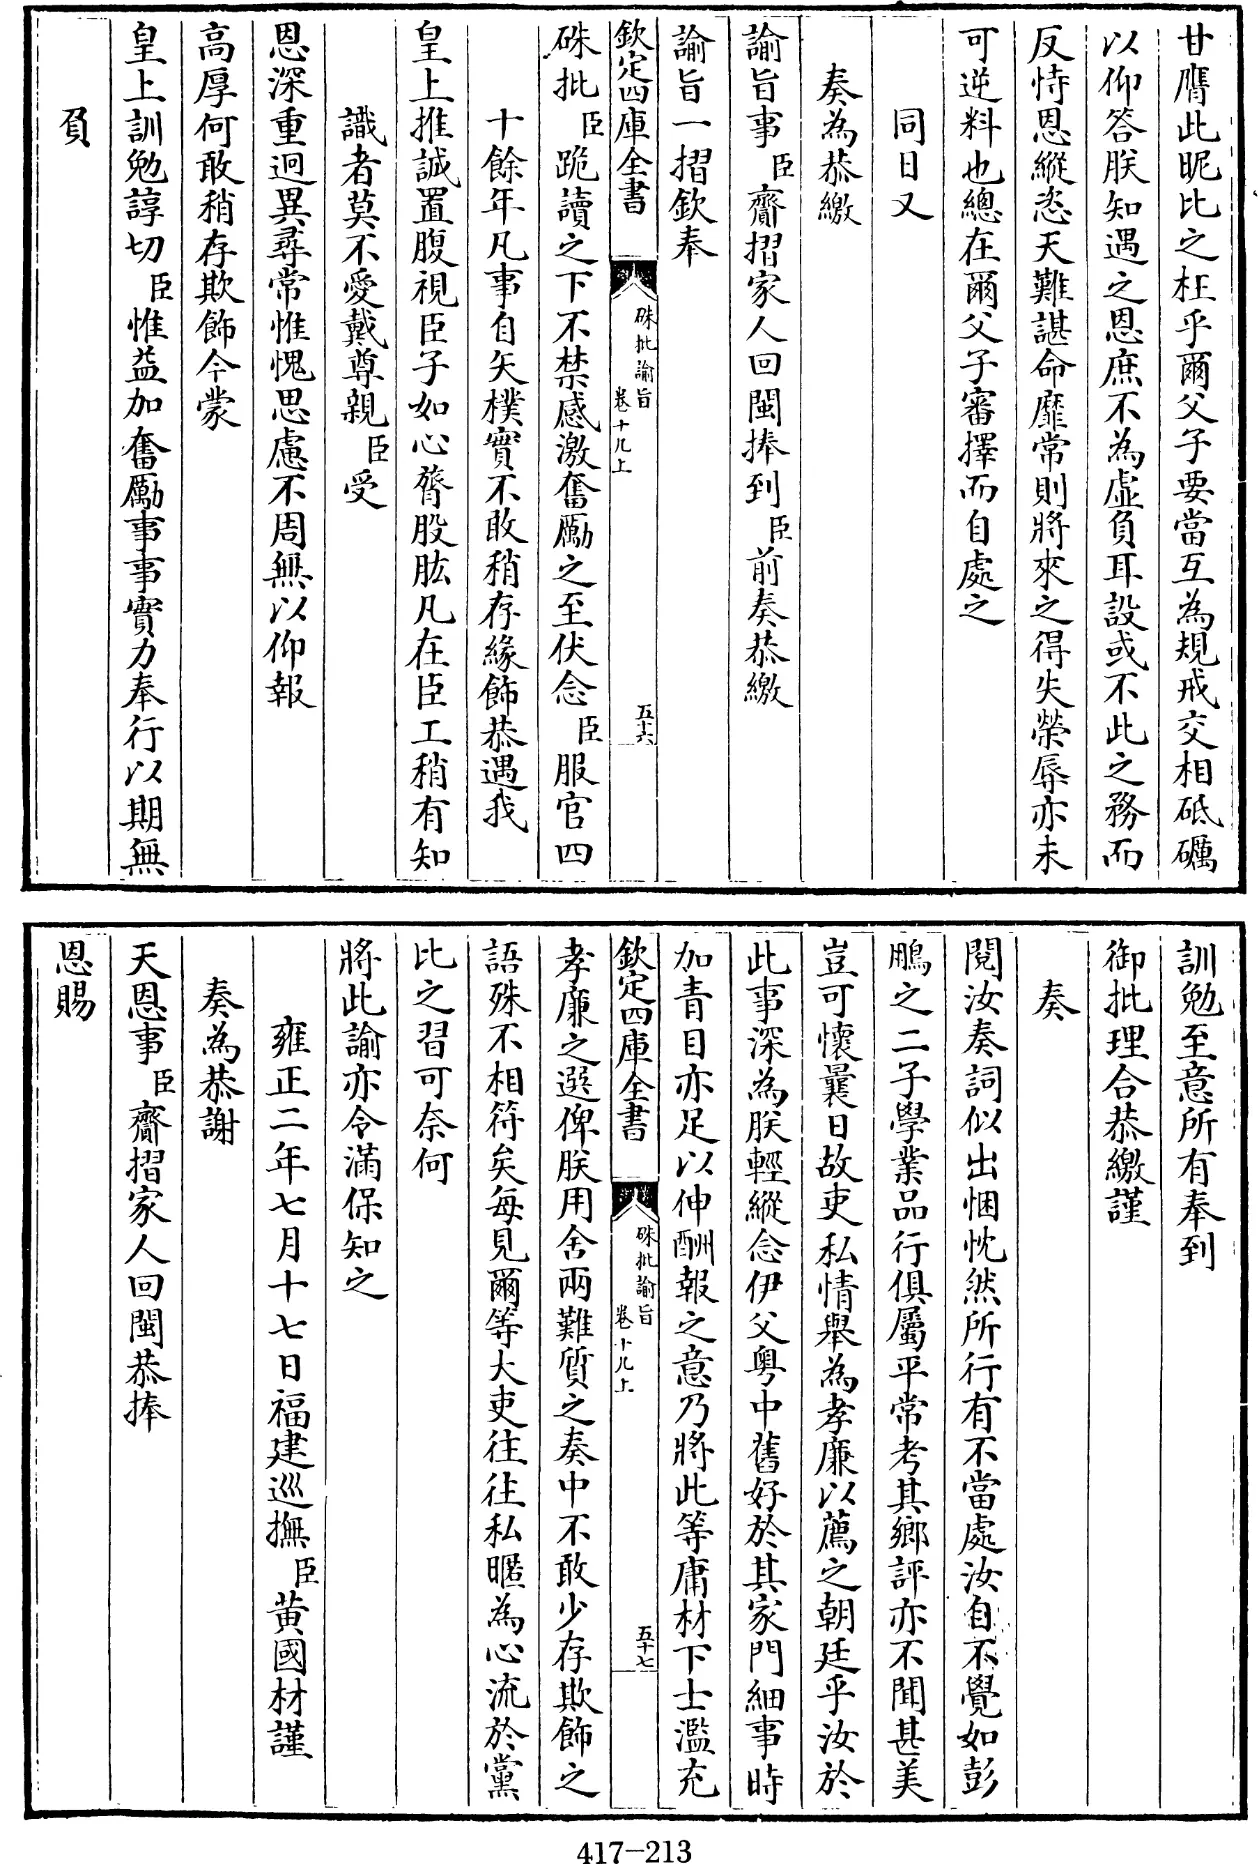 甘膺此昵比之枉乎爾父子要當互為規戒交相砥礪
以仰答朕知遇之恩庶不為虛負耳設或不此之務而
反恃恩縱恣天難諶命靡常則將來之得失榮辱亦未
可逆料也總在爾父子審擇而自處之
同日又
奏為恭繳
諭旨事臣齎摺家人回閩捧到臣前奏恭繳
諭旨一摺欽奉
欽定四庫全書
硃批諭旨
卷十九上
五十六
硃批臣跪讀之下不禁感激奮勵之至伏念臣服官四
十餘年凡事自矢樸實不敢稍存緣飾恭遇我
皇上推誠置腹視臣子如心膂股肱凡在臣工稍有知
識者莫不愛戴尊親臣受
恩深重迥異尋常惟愧思慮不周無以仰報
高厚何敢稍存欺飾今蒙
皇上訓勉諄切臣惟益加奮勵事事實力奉行以期無
負
訓勉至意所有奉到
御批理合恭繳謹
奏
閱汝奏詞似出悃忱然所行有不當處汝自不覺如彭
鵬之二子學業品行俱屬平常考其鄉評亦不聞甚美
豈可懷曩日故吏私情舉為孝廉以薦之朝廷乎汝於
此事深為朕輕縱念伊父粵中舊好於其家門細事時
加青目亦足以伸酬報之意乃將此等庸材下士濫充
欽定四庫全書
硃批諭旨
卷十九上
五十七
孝廉之選俾朕用舍兩難質之奏中不敢少存欺飾之
語殊不相符矣每見爾等大吏往往私暱為心流於黨
比之習可奈何
將此諭亦令滿保知之
雍正二年七月十七日福建巡撫臣黃國材謹
奏為恭謝
天恩事臣齎摺家人回閩恭捧
恩賜
417-213